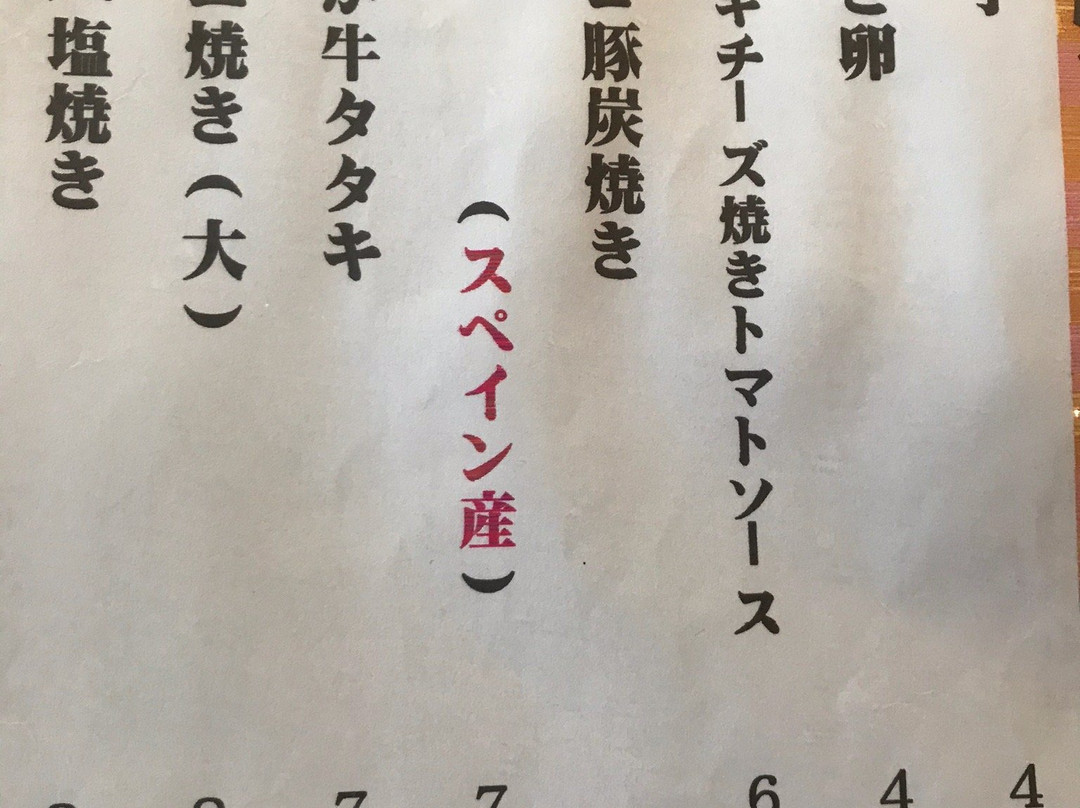 卵
キチーズ焼きトマトソース
豚炭焼き
(スペイン産)
牛タタキ
焼き(大)
塩焼き
4
4
6
7
7